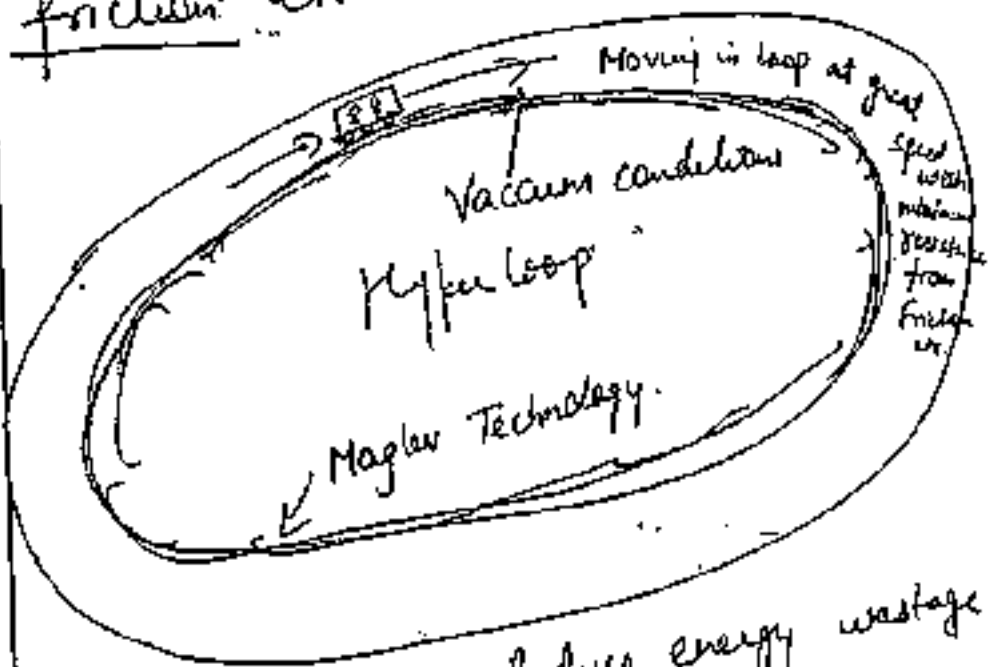 friction
Moving in loop at great
speed with
minimum
resistance
from
friction
Vaccum conditions
Hyperloop
Maglev Technology.
energy wastage